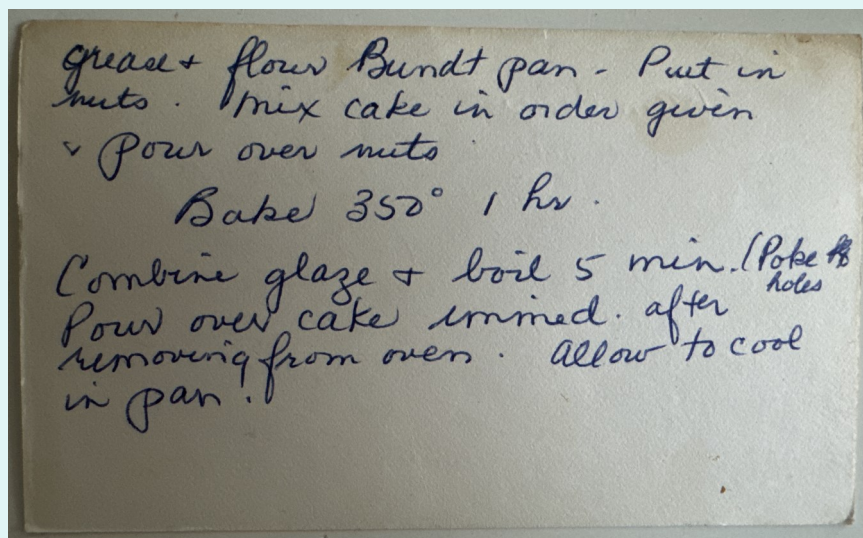 Grease + flour Bundt pan - Put in
nuts. Mix cake in order given
+ pour over nuts
Bake 350° 1 hr.
Combine glaze + boil 5 min. (Poke
holes
Pour over cake immed. after
removing from oven. Allow to cool
in pan!